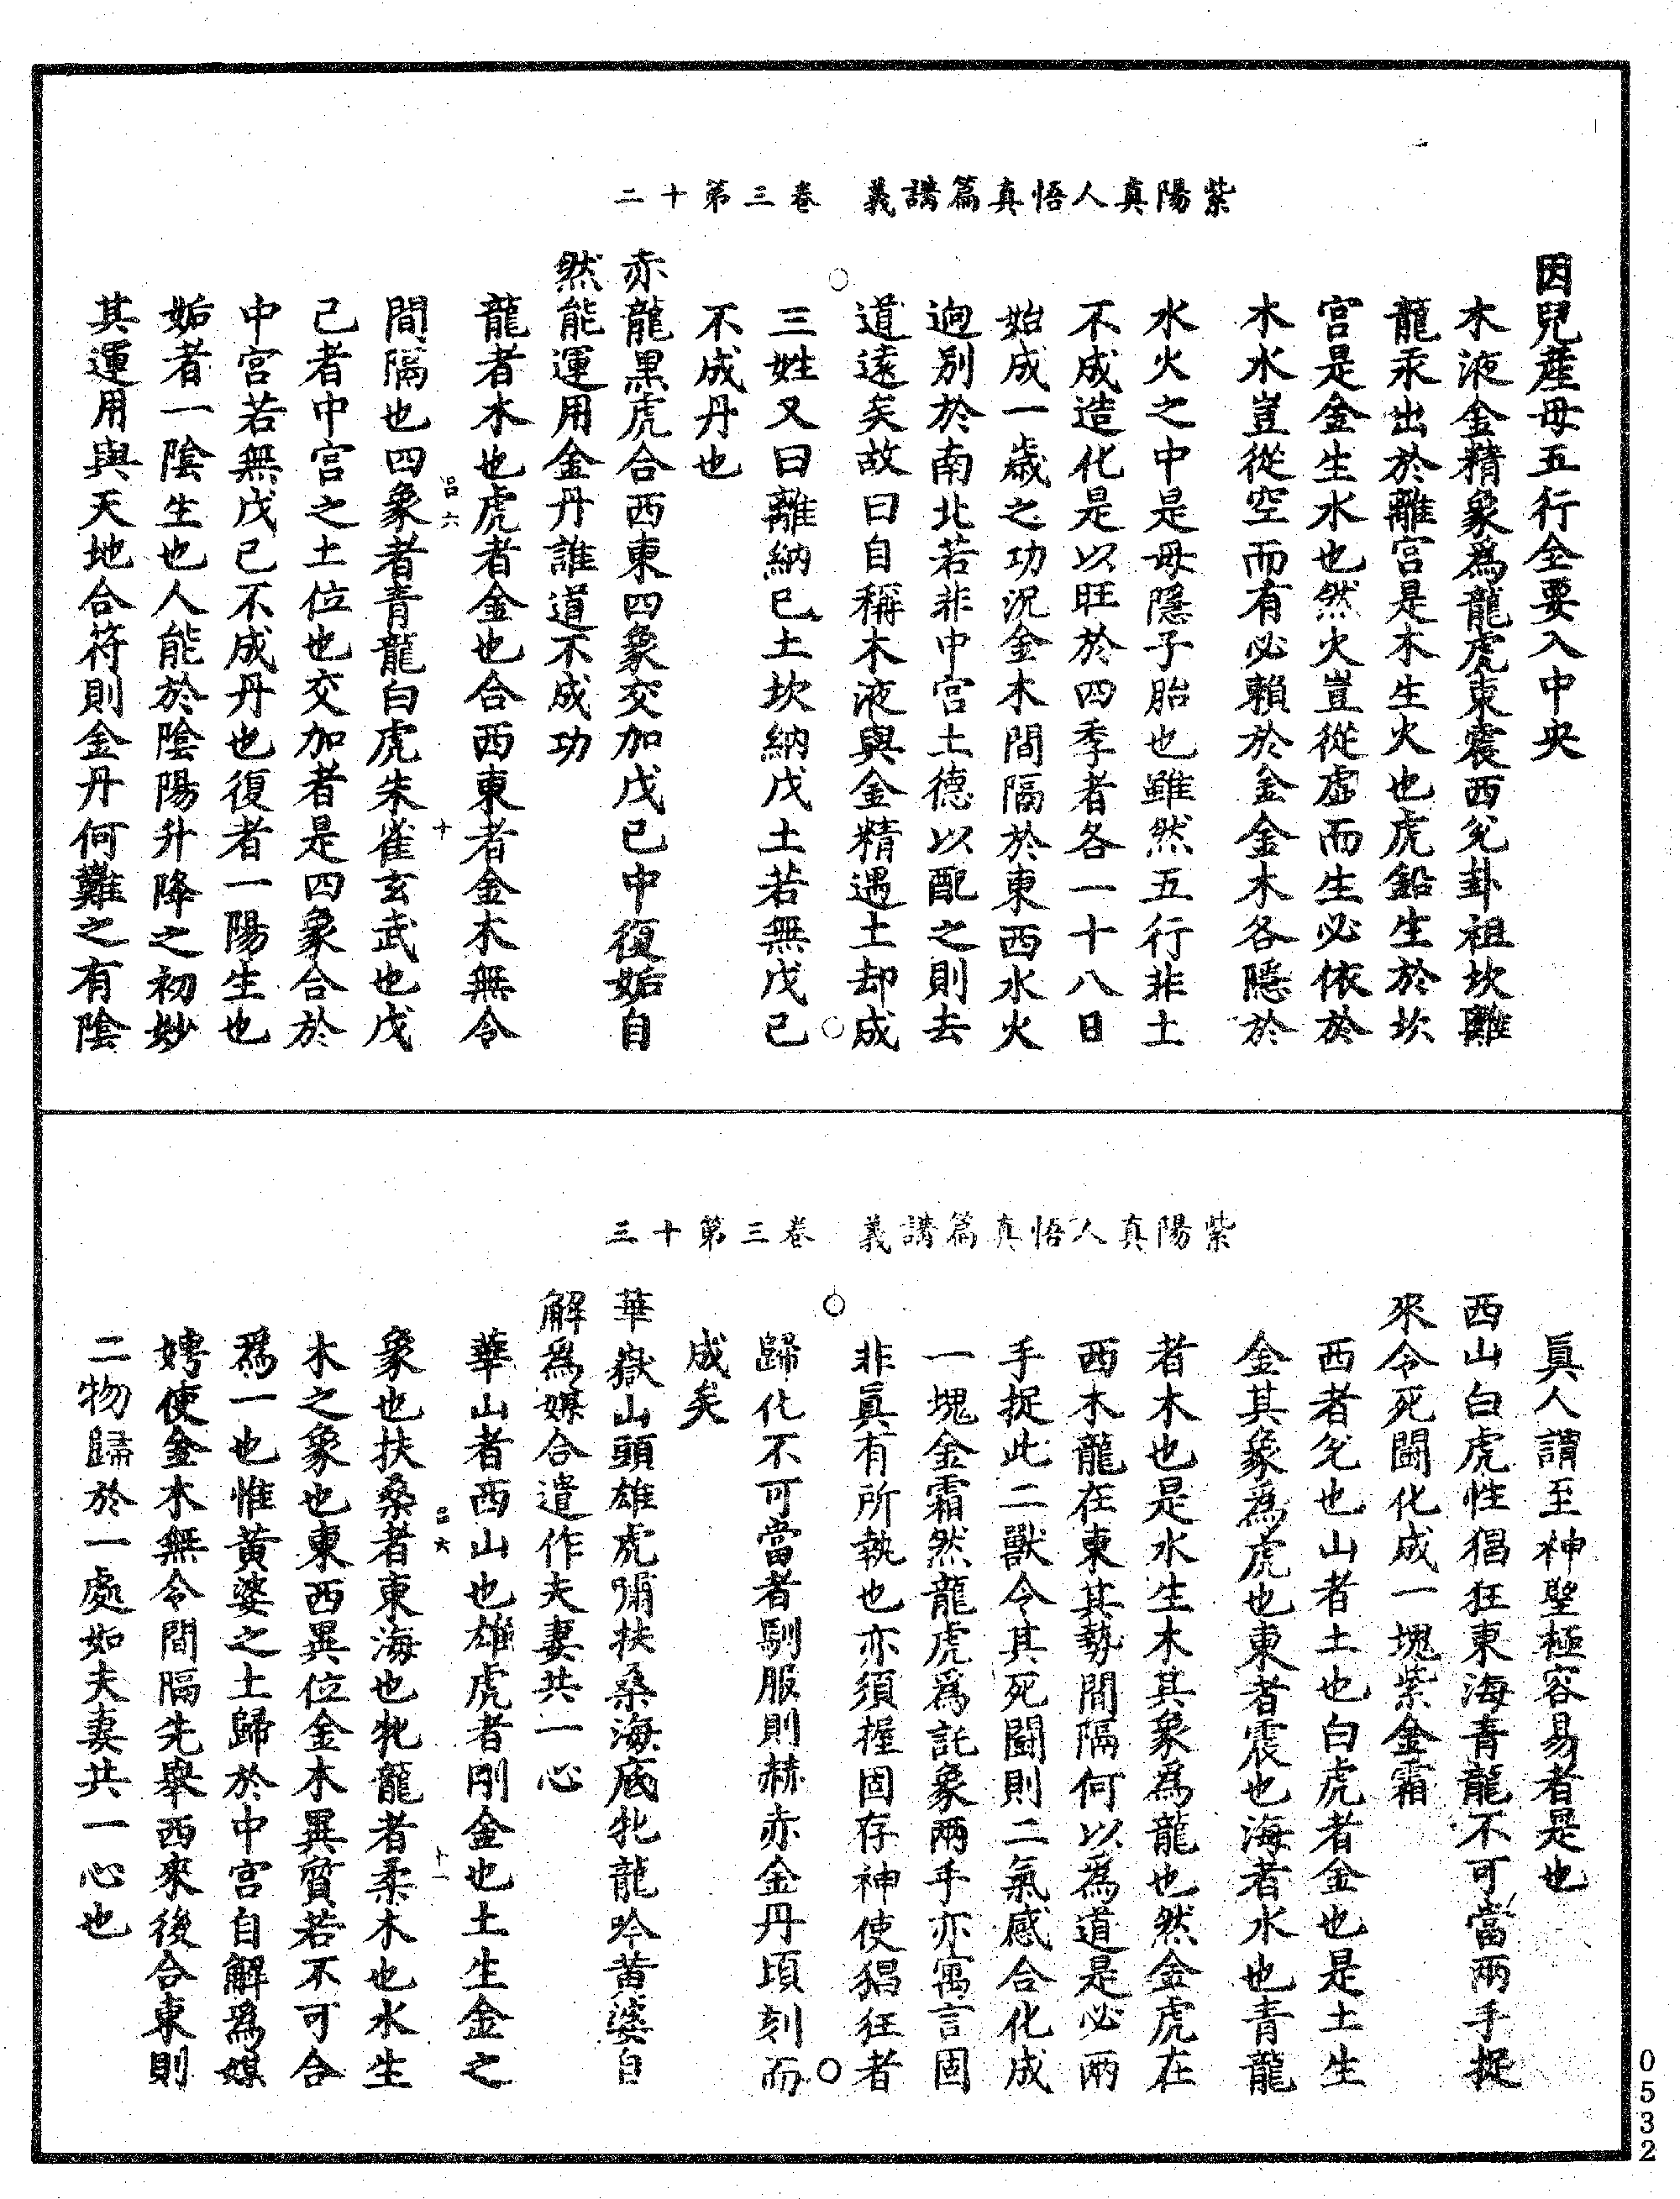 紫陽真人悟真篇講義　卷三第十二
因兒產母五行全要入中央
木液金精象爲龍虎東震西兊卦祖坎離
龍汞出於離宮是木生火也虎鉛生於坎
宮是金生水也然火豈從虛而生必依於
木水豈從空而有必賴於金金木各隱於
水火之中是母隱子胎也雖然五行非土
不成造化是以旺於四季者各一十八日
始成一歲之功況金木間隔於東西水火
逈別於南北若非中宮土德以配之則去
道遠矣故曰自稱木液與金精遇土却成
三姓又曰離納己土坎納戊土若無戊己
不成丹也
赤龍黑虎合西東四象交加戊己中復姤自
然能運用金丹誰道不成功
龍者木也虎者金也合西東者金木無令
呂六
十
間隔也四象者青龍白虎朱雀玄武也戊
己者中宮之土位也交加者是四象合於
中宮若無戊己不成丹也復者一陽生也
姤者一陰生也人能於陰陽升降之初妙
其運用與天地合符則金丹何難之有陰
紫陽真人悟真篇講義　卷三第十三
眞人謂至神聖極容易者是也
西山白虎性猖狂東海青龍不可當兩手捉
來令死鬭化成一塊紫金霜
西者兊也山者土也白虎者金也是土生
金其象爲虎也東者震也海者水也青龍
者木也是水生木其象爲龍也然金虎在
西木龍在東其勢間隔何以爲道是必兩
手捉此二獸令其死鬭則二氣感合化成
一塊金霜然龍虎爲託象兩手亦寓言固
非眞有所執也亦須握固存神使猖狂者
歸化不可當者馴服則赫赤金丹頃刻而
成矣
華嶽山頭雄虎嘯扶桑海底牝龍吟黃婆自
解爲媒合遣作夫妻共一心
華山者西山也雄虎者剛金也土生金之
呂六
十一
象也扶桑者東海也牝龍者柔木也水生
木之象也東西異位金木異質若不可合
爲一也惟黃婆之土歸於中宮自解爲媒
娉使金木無令間隔先舉西來後合東則
二物歸於一處如夫妻共一心也
0532